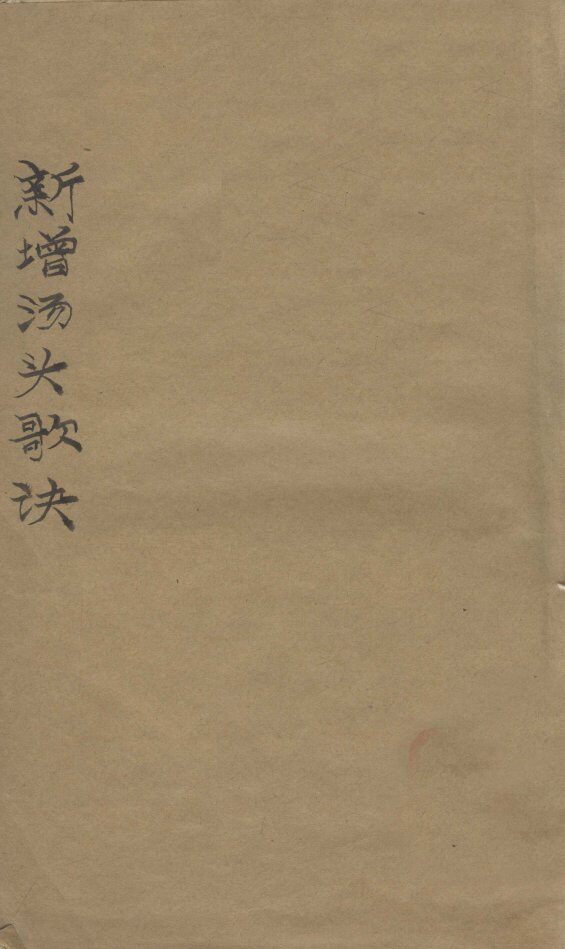 新增汤头歌诀